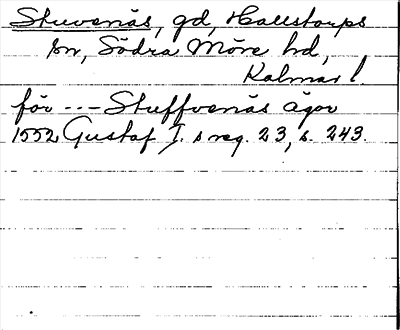 Stuvenäs, gd, Hallstorps
sn, Södra Möre hd,
Kalmar l.
för --- Stuffvenäs ägor
1552 Gustaf I. s reg. 23, s. 243.